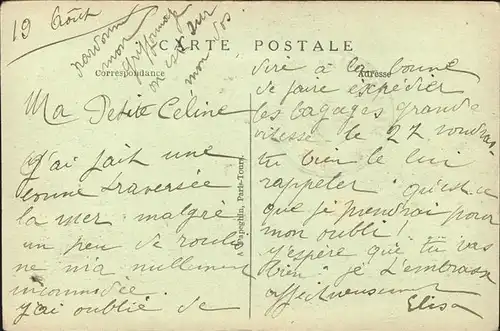 19 Août
pardonne
mon
griffonnage
on est sur
mon dos
CARTE POSTALE
Correspondance
Adresse
Ma Petite Céline
J'ai fait une
bonne traversée
la mer malgré
un peu de roulis
ne m'a nullement
incommodée.
j'ai oublié de
A. Papeghin, Paris-Tours.
dire à la bonne
de faire expédier
les bagages grande
vitesse le 27 voudras
tu bien le lui
rappeler qu'est ce
que je prendrai pour
mon oubli!
j'espère que tu vas
bien je t'embrasse
affectueusement
Elisa